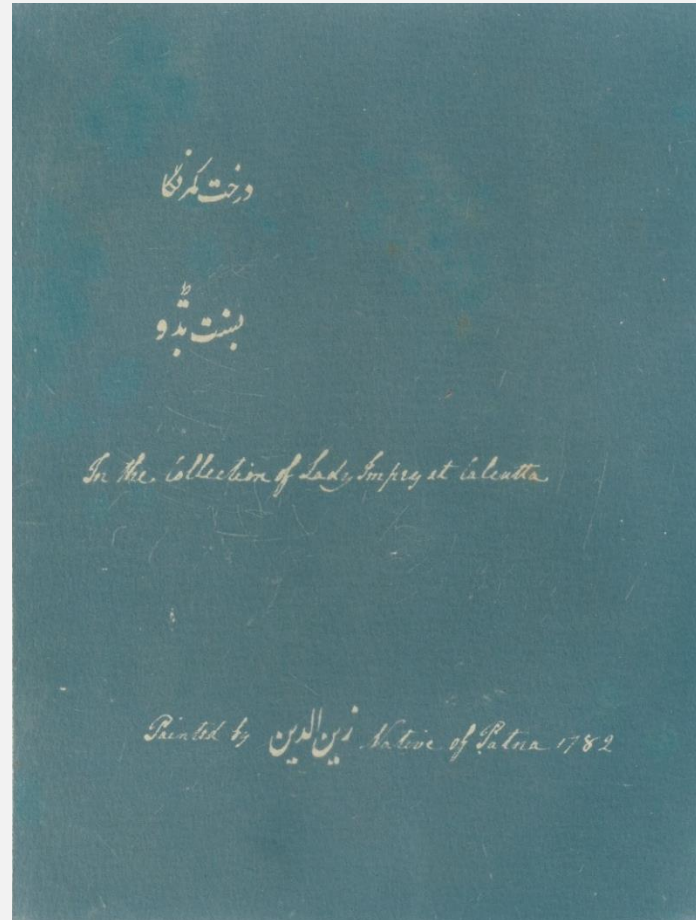 درخت کمرنگا
بسنت بڈو
In the Collection of Lady Impey at Calcutta
Painted by زين الدين Native of Patna 1782